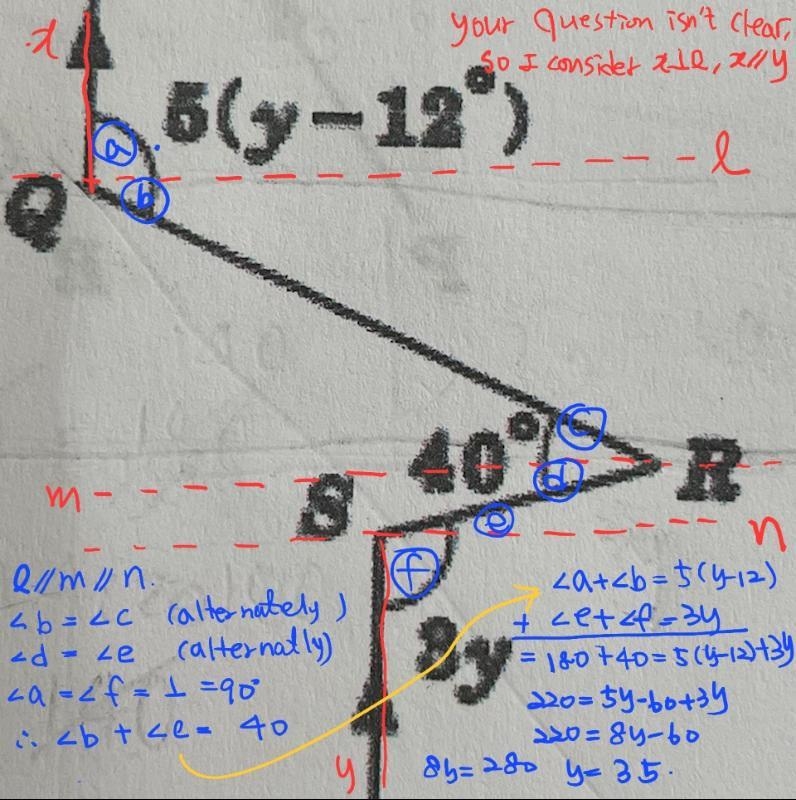 your Question isn't clear,
so I consider x⊥l, x//y
x
5(y−12°)
a
l
b
Q
c
40°
d
R
m
S
e
n
f
3y
l//m//n.
∠b = ∠c (alternately)
∠d = ∠e (alternatly)
∠a = ∠f = ⊥ = 90°
∴ ∠b + ∠e = 40
∠a+∠b = 5(y-12)
+ ∠e+∠f = 3y
= 180+40 = 5(y-12)+3y
220 = 5y-60+3y
220 = 8y-60
8y = 280 y = 35.
y